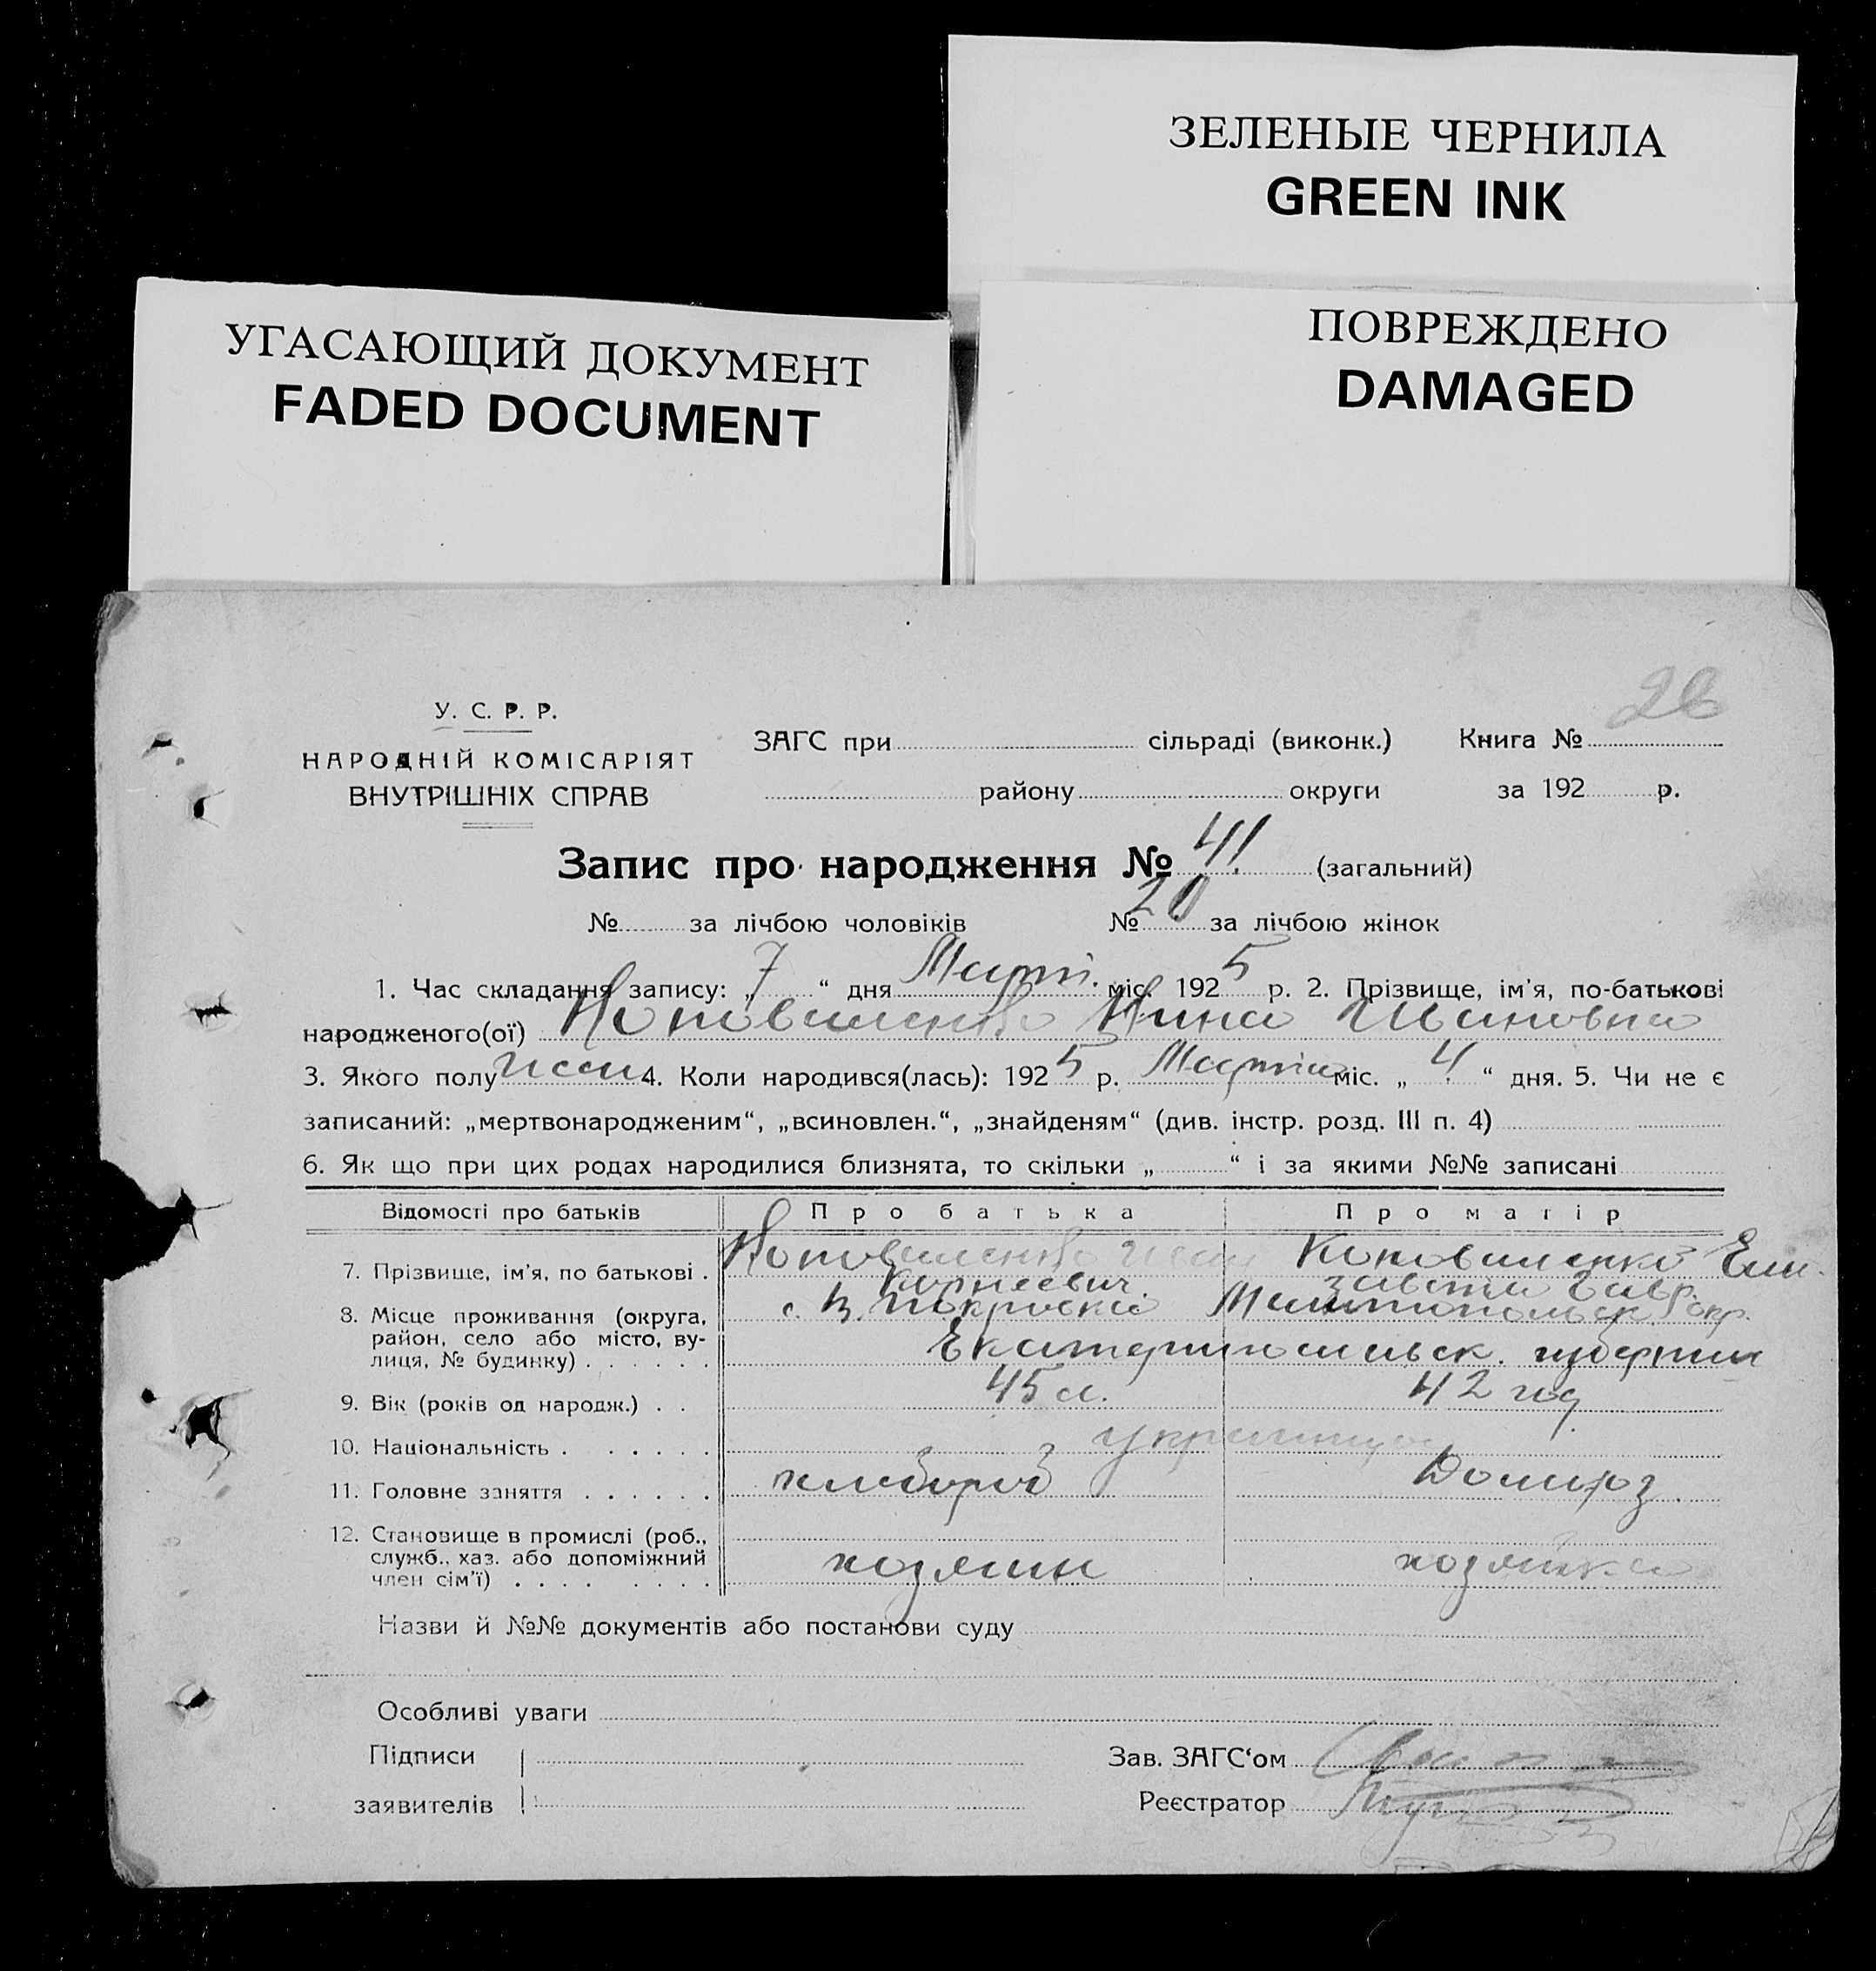 ЗЕЛЕНЫЕ ЧЕРНИЛА
GREEN INK
УГАСАЮЩИЙ ДОКУМЕНТ
FADED DOCUMENT
ПОВРЕЖДЕНО
DAMAGED
26
У. С. Р. Р.
НАРОДНІЙ КОМІСАРІЯТ
ВНУТРІШНІХ СПРАВ
ЗАГС при сільраді (виконк.) Книга №
району округи за 192 р.
Запис про народження № 41 (загальний)
№ за лічбою чоловіків № 20 за лічбою жінок
1. Час складання запису: „ 7 “ дня Март. міс. 1925 р. 2. Прізвище, ім’я, по-батькові
народженого(ої) Коноваленко Нина Ивановна
3. Якого полу жен 4. Коли народився(лась): 1925 р. Марта міс. „ 4 “ дня. 5. Чи не є
записаний: „мертвонародженим“, „всиновлен.“, „знайденям“ (див. інстр. розд. III п. 4)
6. Як що при цих родах народилися близнята, то скільки „ “ і за якими №№ записані
Відомості про батьків Про батька Про матір
7. Прізвище, ім’я, по батькові . Коноваленко Иван Коноваленко Ели-
Корнеевич. завета Гавр.
8. Місце проживання (округа, с. В. Покровка Мелитопольск. окр.
район, село або місто, ву-
лиця, № будинку) . . . . . . Екатеринославск. губернии
9. Вік (років од народж.) . . 45 л. 42 год.
10. Національність . . . . . . украинцы
11. Головне заняття . . . . . . хлебороб Домхоз.
12. Становище в промислі (роб.,
служб., хаз. або допоміжний хозяин хозяйка
член сім’ї) . . . . . . . .
Назви й №№ документів або постанови суду
Особливі уваги
Підписи Зав. ЗАГС‘ом
заявителів Реєстратор